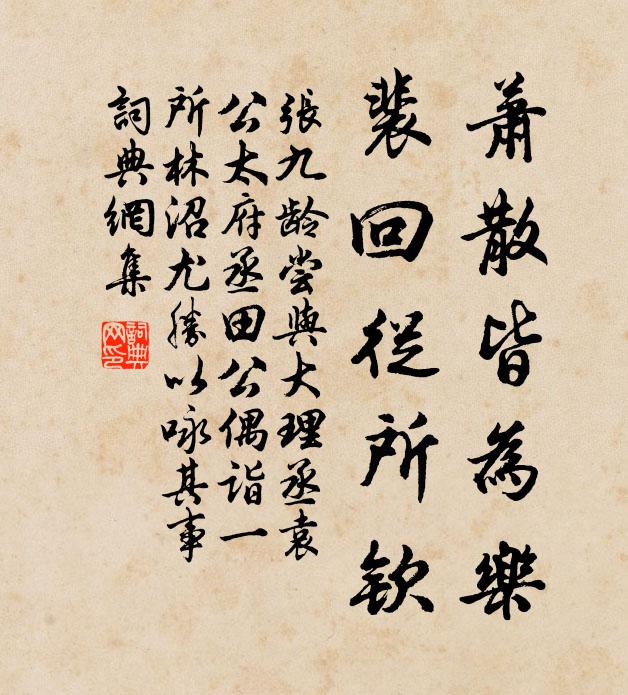 蕭散皆為樂
裴回從所欽
張九齡嘗與大理丞袁
公太府丞田公偶詣一
所林沼尤勝以咏其事
詞典網集
詞典
网印